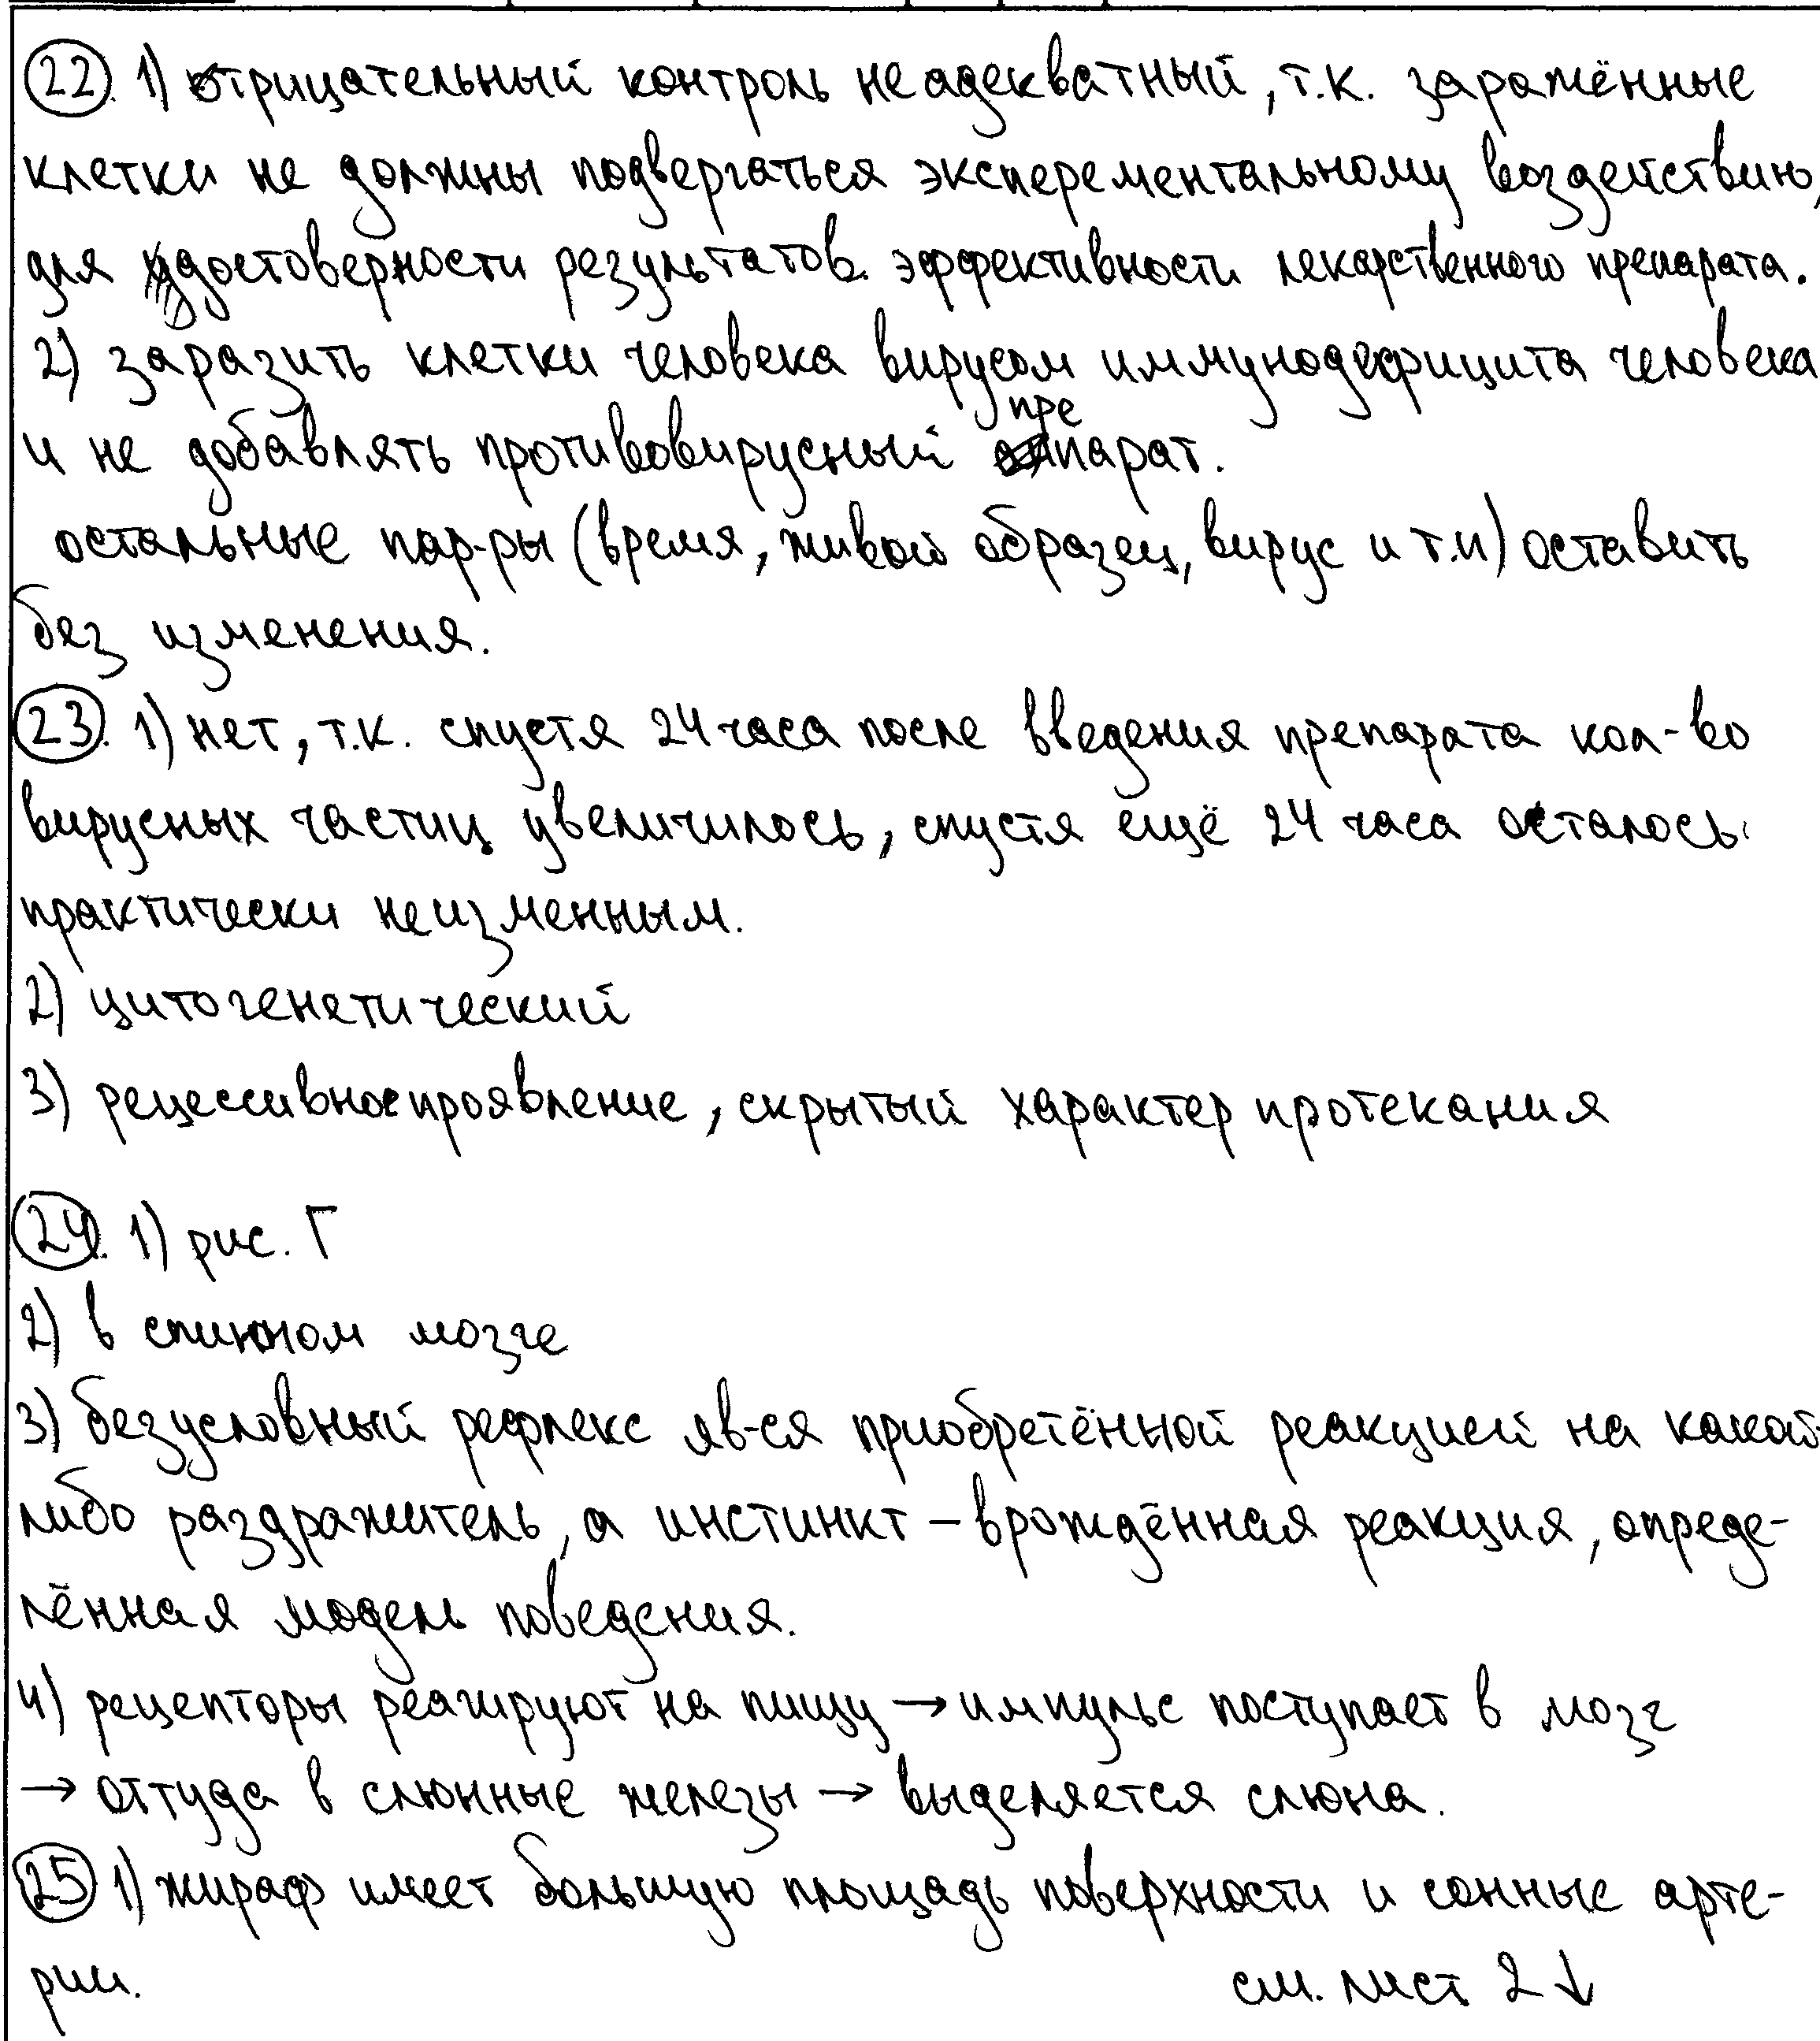 22. 1) отрицательный контроль неадекватный, т.к. заражённые
клетки не должны подвергаться эксперементальному воздействию,
для достоверности результатов эффективности лекарственного препарата.
2) заразить клетки человека вирусом иммунодефицита человека
и не добавлять противовирусный препарат.
остальные пар-ры (время, живой образец, вирус и т.п) оставить
без изменения.
23. 1) нет, т.к. спустя 24 часа после введения препарата кол-во
вирусных частиц увеличилось, спустя ещё 24 часа осталось
практически неизменным.
2) цитогенетический
3) рецессивное проявление, скрытый характер протекания
24. 1) рис. Г
2) в спинном мозге
3) безусловный рефлекс яв-ся приобретённой реакцией на какой-
либо раздражитель, а инстинкт – врождённая реакция, опреде-
лённая модель поведения.
4) рецепторы реагируют на пищу → импульс поступает в мозг
→ оттуда в слюнные железы → выделяется слюна.
25 1) жираф имеет большую площадь поверхности и сонные арте-
рии.
см. лист 2 ↓